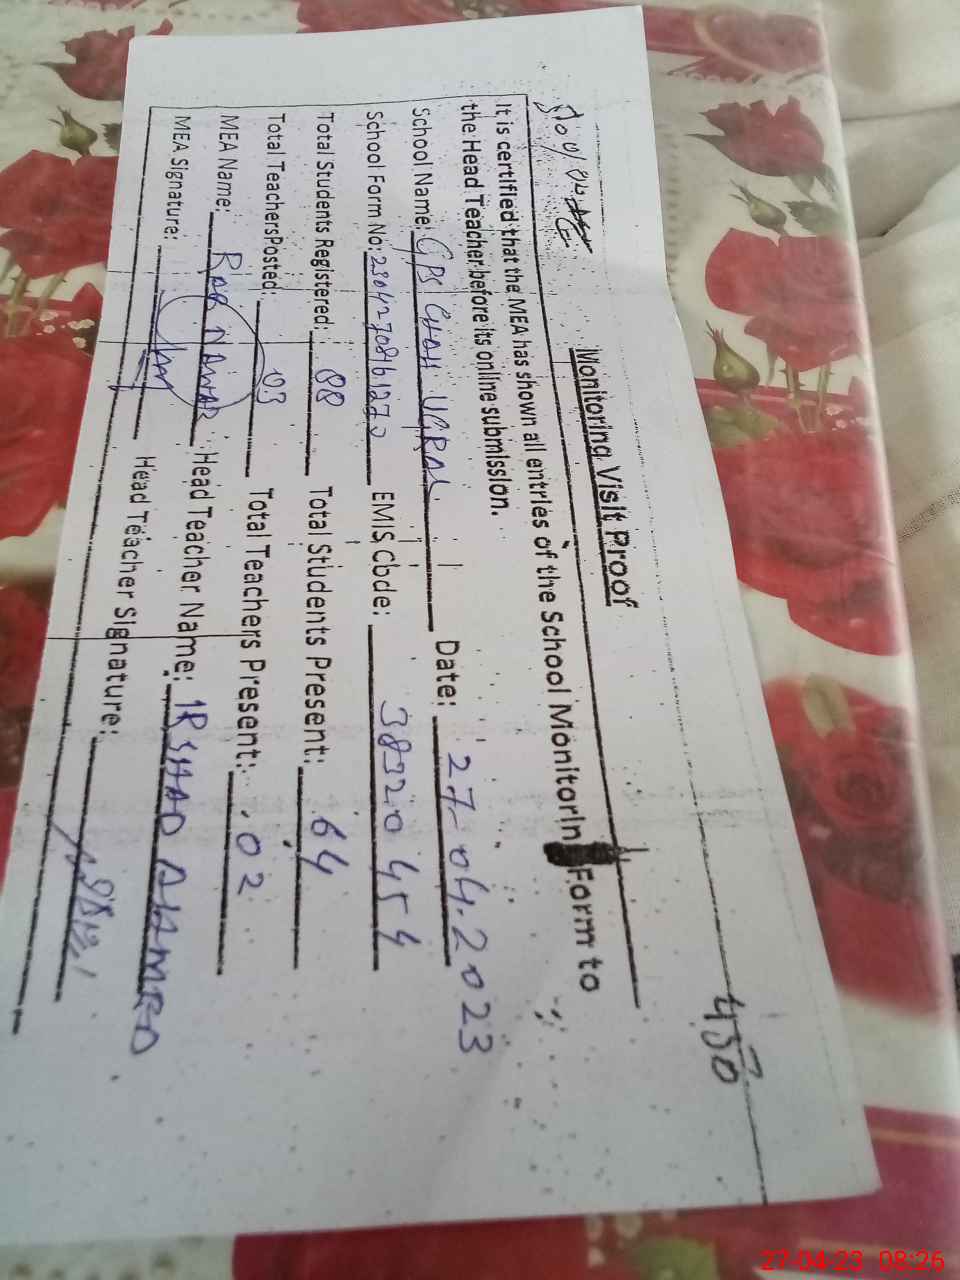 450
Monitoring Visit Proof
It is certified that the MEA has shown all entries of the School Monitorin Form to
the Head Teacher before its online submission.
School Name: GPS CHAH UGRAL Date: 27-04-2023
School Form No: EMIS Code: 38320454
Total Students Registered: 88 Total Students Present: 64
Total TeachersPosted: 03 Total Teachers Present: 02
MEA Name: RAB NAWAZ Head Teacher Name: IRSHAD AHMED
MEA Signature: Head Teacher Signature:
27-04-23 08:26